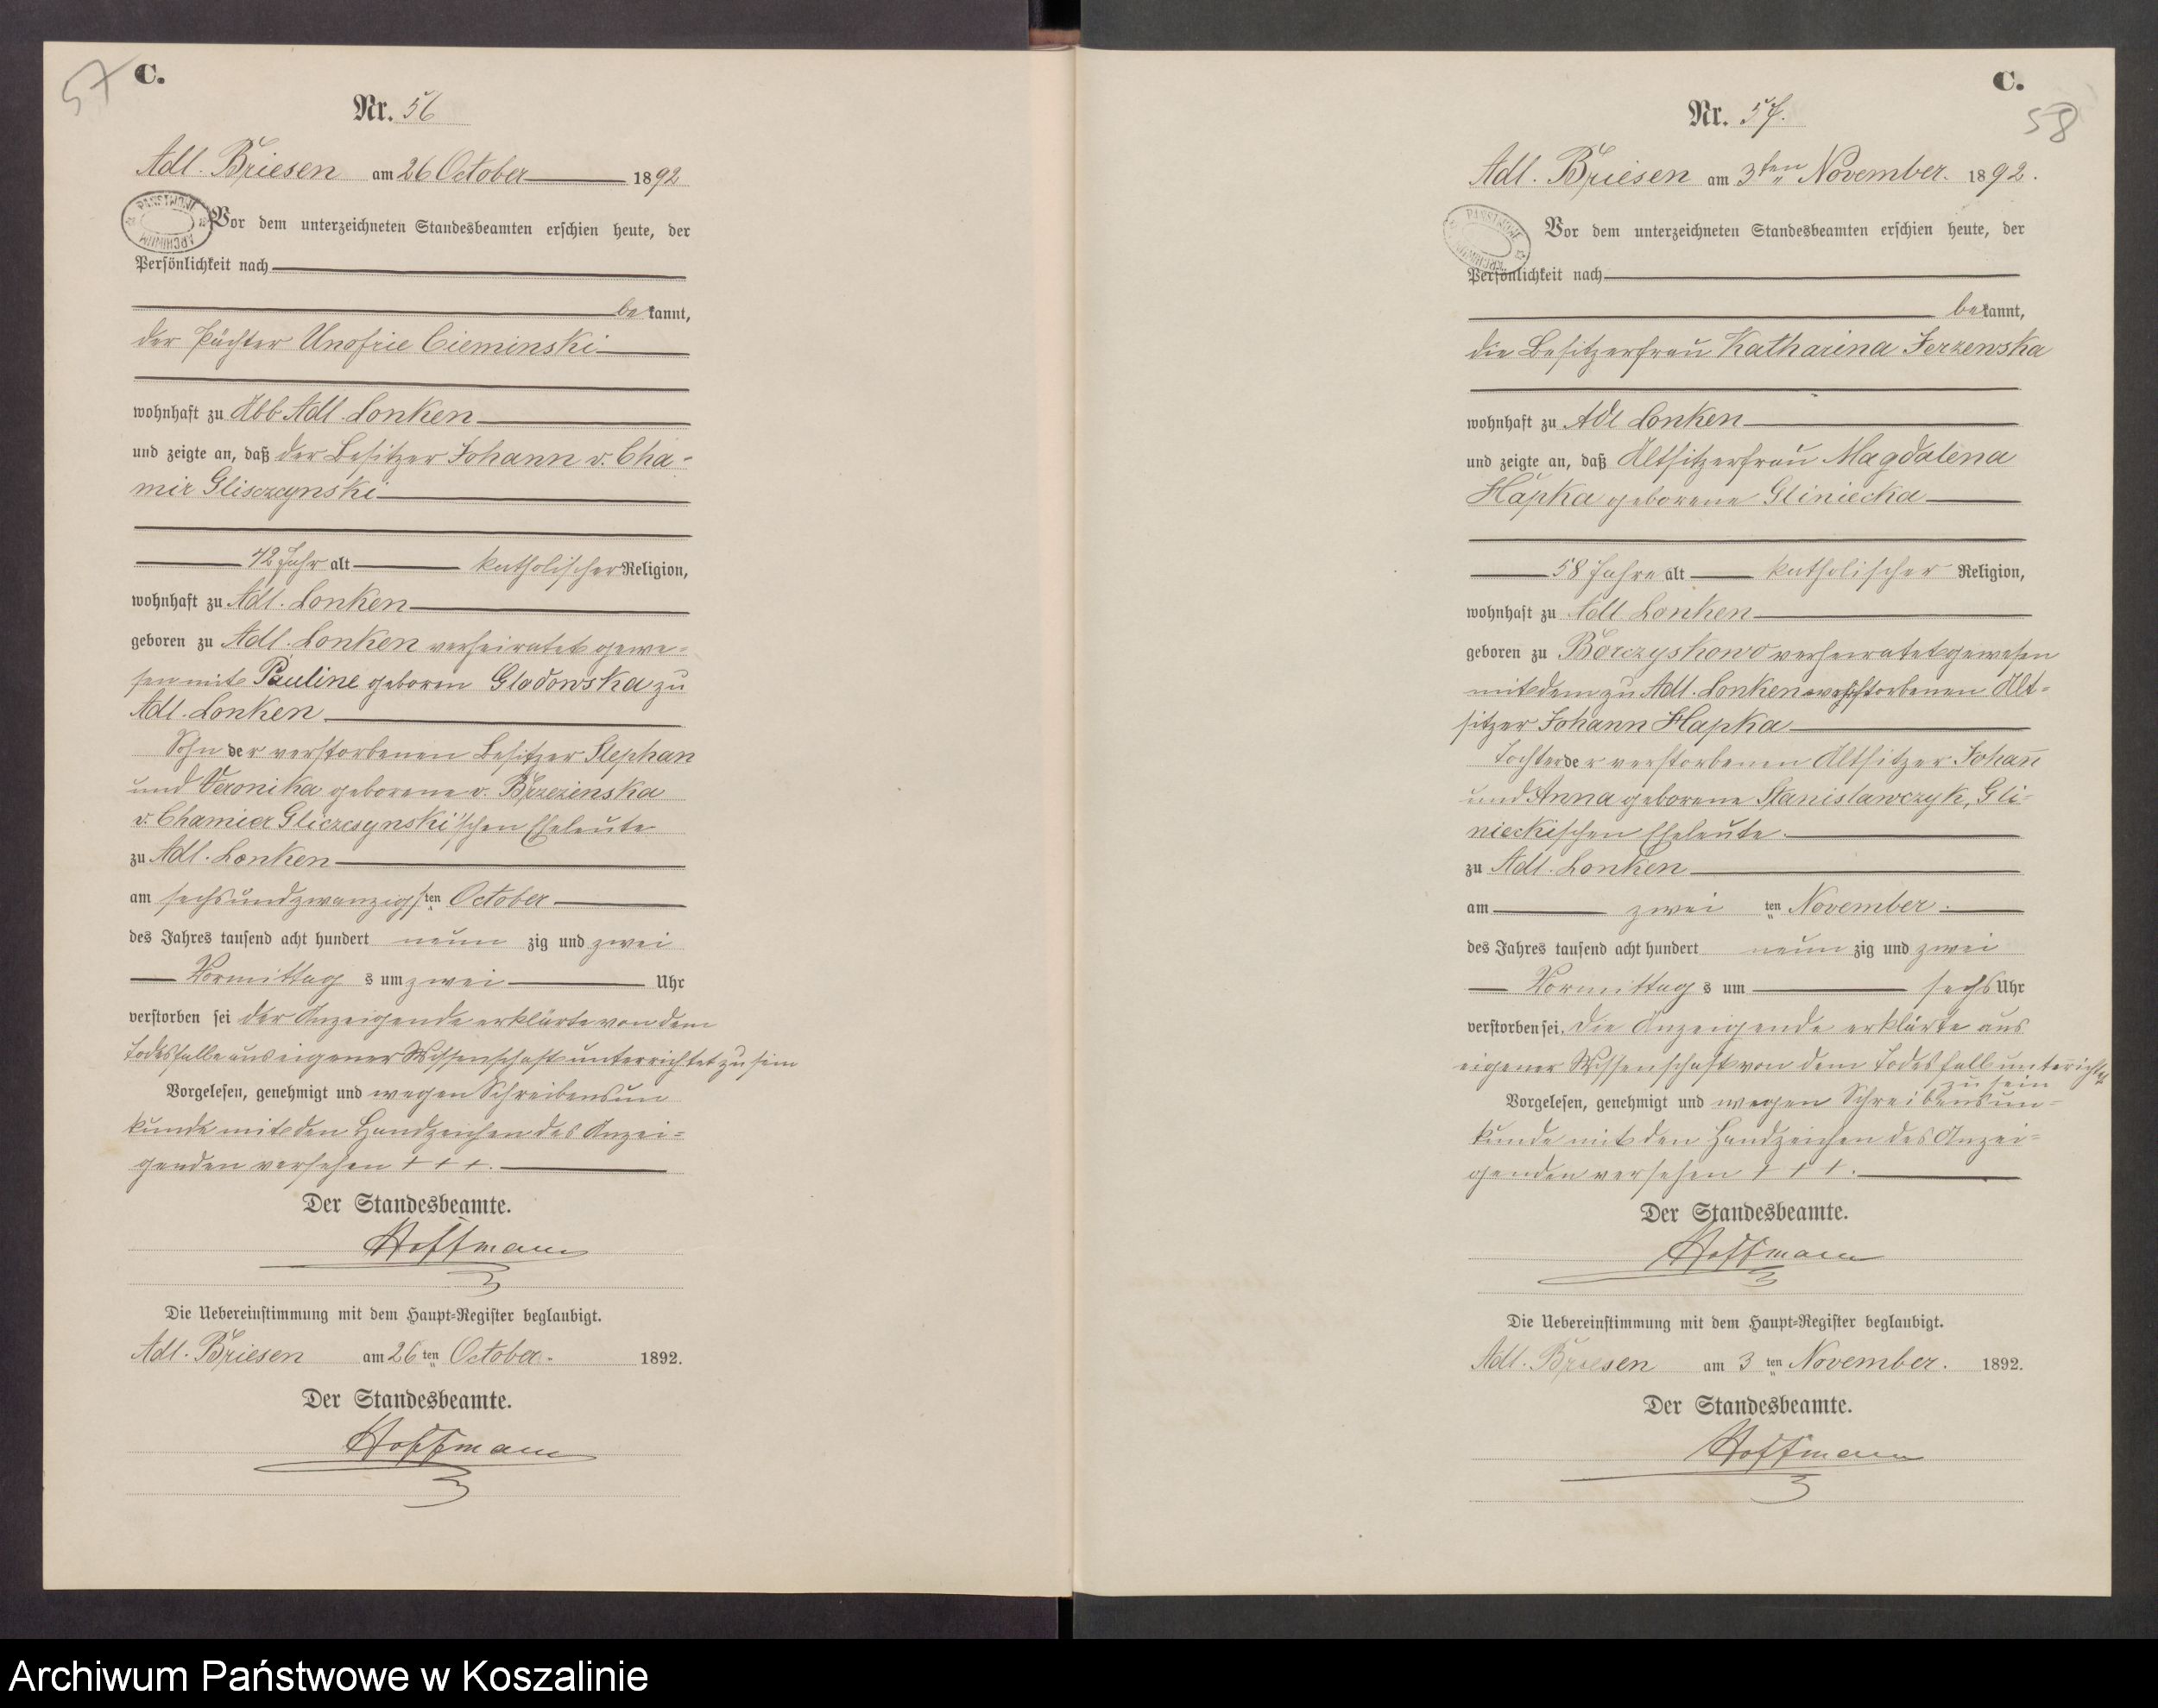 57
C.
Nr. 56
Adl. Briesen am 26 October 1892
PAŃSTWOWE ARCHIWUM
Vor dem unterzeichneten Standesbeamten erschien heute, der
Persönlichkeit nach
bekannt,
der Pächter Unofrie Cieminski
wohnhaft zu Abb Adl. Lonken
und zeigte an, daß der Besitzer Johann v. Cha-
mir Glisczcynski
42 Jahr alt katholischer Religion,
wohnhaft zu Adl. Lonken
geboren zu Adl. Lonken verheiratet gewe=
sen mit Pauline geboren Gladowska zu
Adl. Lonken
Sohn der verstorbenen Besitzer Stephan
und Veronika geborene v. Brzezinska
v. Chamier Gliczcsynski'schen Eheleute
zu Adl. Lonken
am sechsundzwanzigsten October
des Jahres tausend acht hundert neun zig und zwei
Vormittag s um zwei Uhr
verstorben sei der Anzeigende erklärte von dem
Todesfalle aus eigener Wissenschaft unterrichtet zu sein
Vorgelesen, genehmigt und wegen Schreibensun
kunde mit den Handzeichen des Anzei=
genden versehen + + +.
Der Standesbeamte.
Hoffmann
Die Uebereinstimmung mit dem Haupt=Register beglaubigt.
Adl. Briesen am 26 ten October 1892.
Der Standesbeamte.
Hoffmann
C.
58
Nr. 57.
Adl. Briesen am 3ten November. 1892.
PAŃSTWOWE ARCHIWUM
Vor dem unterzeichneten Standesbeamten erschien heute, der
Persönlichkeit nach
bekannt,
die Besitzerfrau Katharina Jerzewska
wohnhaft zu Adl Lonken
und zeigte an, daß Altsitzerfrau Magdalena
Hapka geborene Gliniecka
58 Jahre alt katholischer Religion,
wohnhaft zu Adl Lonken
geboren zu Borczyskowo verheiratet gewesen
mit dem zu Adl. Lonken verstorbenen Alt=
sitzer Johann Hapka
Tochter der verstorbenen Altsitzer Johan̄
und Anna geborene Stanislawczyk, Gli=
nieckischen Eheleute.
zu Adl. Lonken
am zwei ten November.
des Jahres tausend acht hundert neun zig und zwei
Vormittag s um sechs Uhr
verstorben sei. die Anzeigende erklärte aus
eigener Wissenschaft von dem Todesfall unterichtet
zu sein
Vorgelesen, genehmigt und wegen Schreibensun=
kunde mit den Handzeichen des Anzei=
genden versehen + + +.
Der Standesbeamte.
Hoffmann
Die Uebereinstimmung mit dem Haupt=Register beglaubigt.
Adl. Briesen am 3 ten November. 1892.
Der Standesbeamte.
Hoffmann
Archiwum Państwowe w Koszalinie